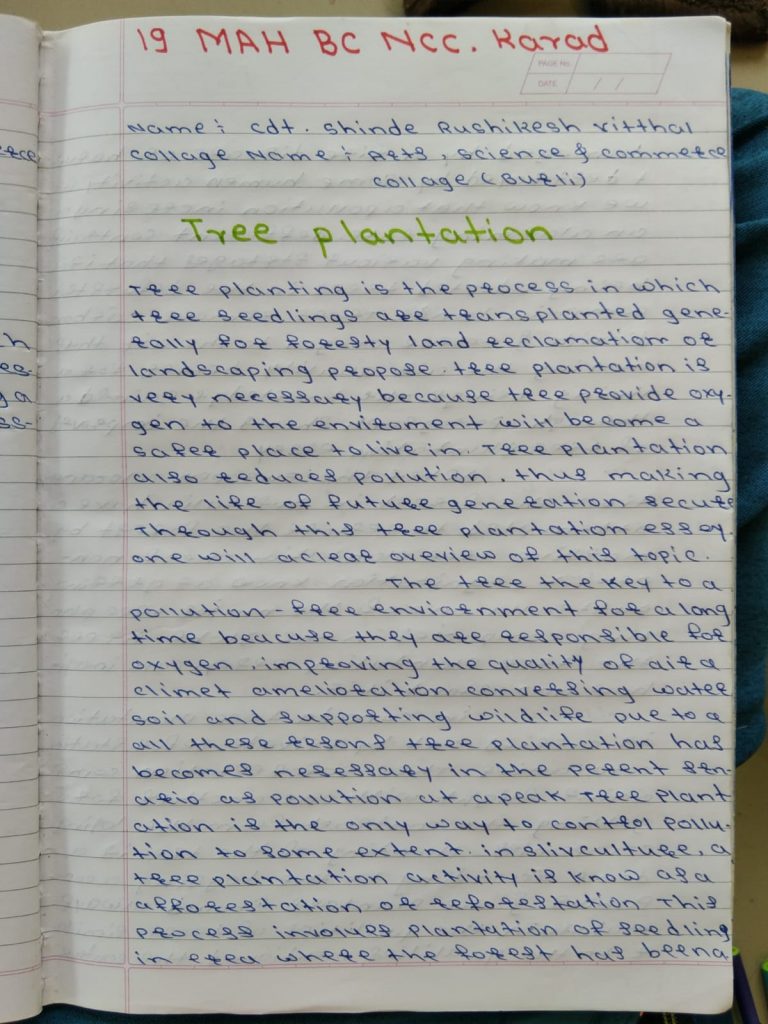 19 MAH BC NCC. Karad
PAGE No.
DATE / /
Name : Cdt. Shinde Rushikesh Vitthal
Collage Name : Arts, Science & Commerce
Collage (Burli)
Tree plantation
Tree planting is the process in which
tree seedlings are transplanted gene-
rally for foresty land reclamation or
landscaping propose. tree plantation is
very necessary because tree provide oxy-
gen to the enviroment will become a
safer place to live in. Tree plantation
also reduces pollution. thus making
the life of future generation secure
Through this tree plantation essay.
one will a clear overview of this topic.
The tree the key to a
pollution - free enviornment for a long
time beacuse they are responsible for
oxygen, improving the quality of air a
climet amelioration conversing water
soil and supporting wildlife Due to a
all these resons tree plantation has
becomes nesessary in the perent sen-
ario as pollution at a peak Tree plant
ation is the only way to control pollu-
tion to some extent. in slivculture, a
tree plantation activity is know as a
afforestation or reforestation This
process involues plantation of seedling
in erea where the forest has been a
ch
g a
ss-